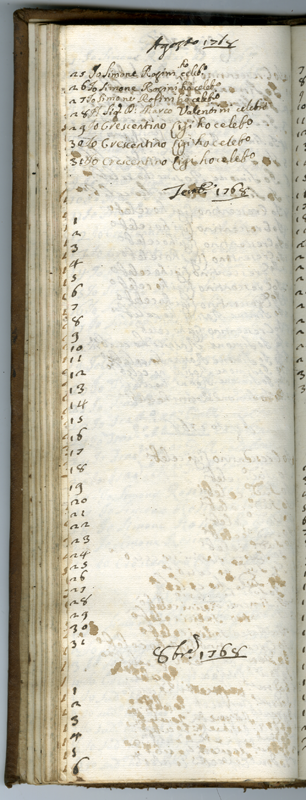 Agosto 1768
25 Io Simone Rosini ho celebo
26 Io Simone Rosini ho celebo
27 Io Simone Rosini ho celebo
28 Il Sigr D. Marco Valentini celebrò
29 Io Crescentino Gigi ho celebo
30 Io Crescentino Gigi ho celebo
31 Io Crescentino Gigi ho celebo
1768
1
2
3
4
5
6
7
8
9
10
11
12
13
14
15
16
17
18
19
20
21
22
23
24
25
26
27
28
29
30
31
8bre 1768
1
2
3
4
5
6